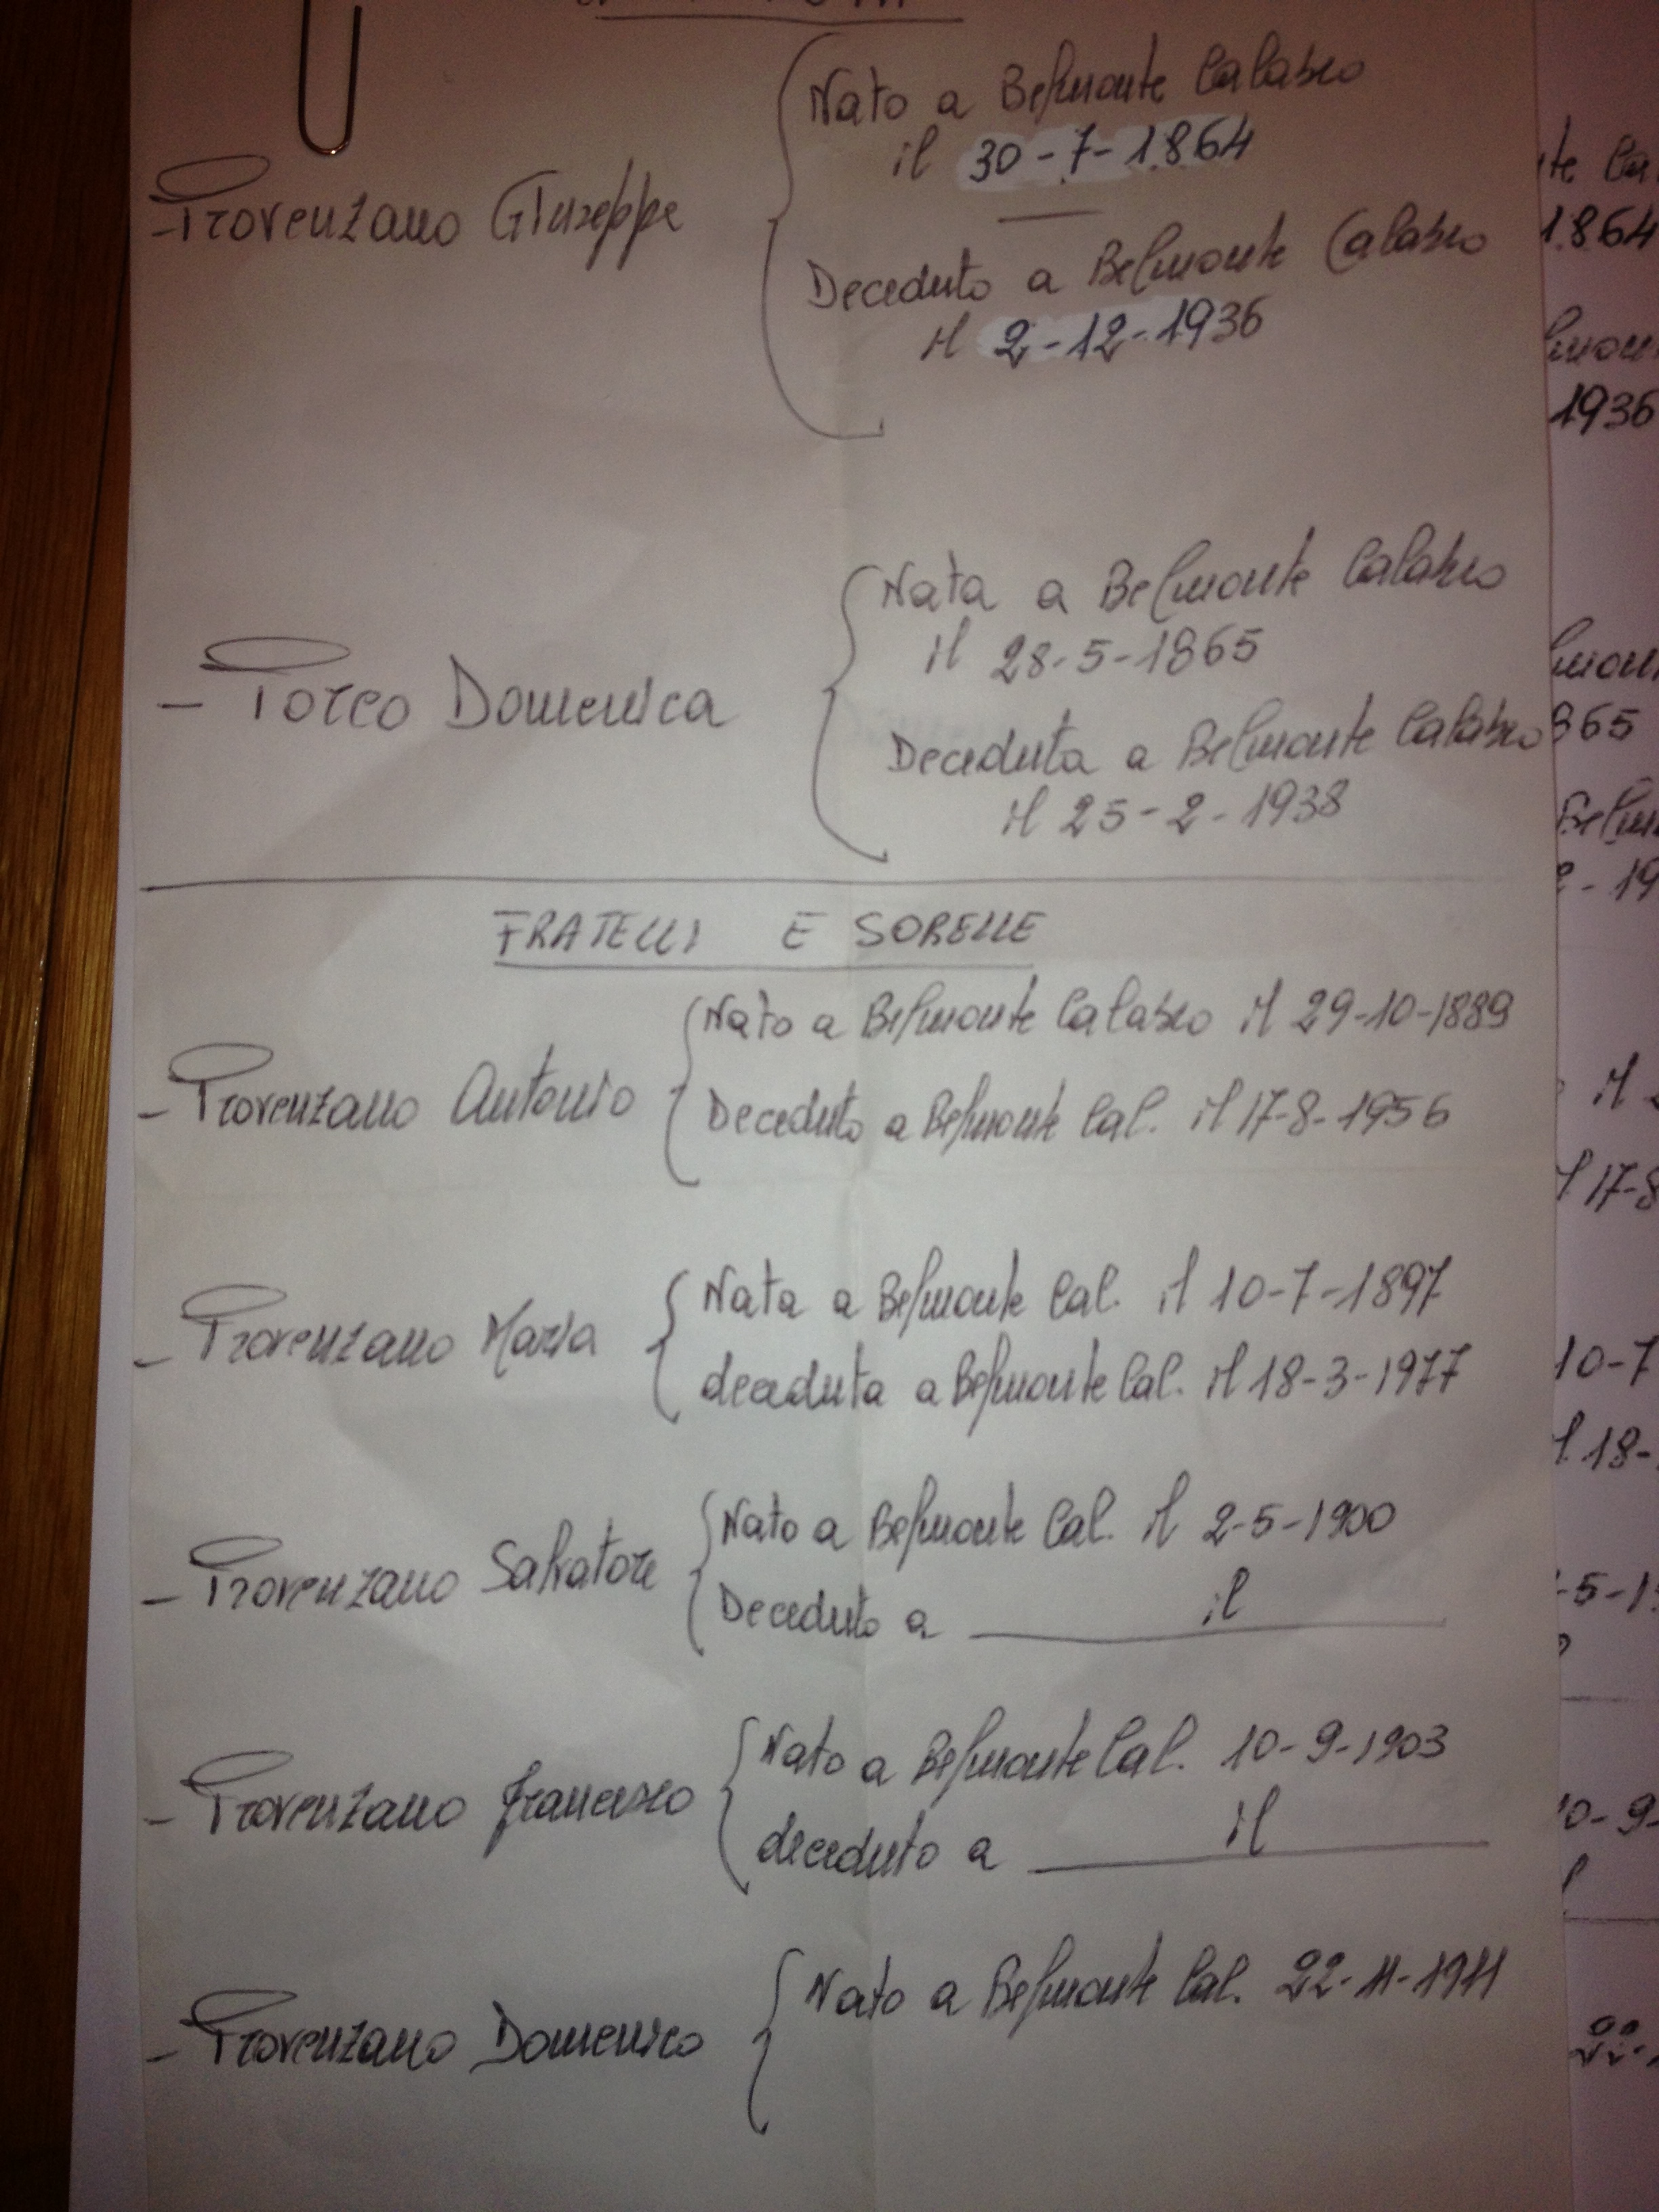 Nato a Belmonte Calabro
il 30-7-1.864
- Provenzano Giuseppe
Deceduto a Belmonte Calabro
il 2-12-1936
Nata a Belmonte Calabro
il 28-5-1865
- Porco Domenica
Deceduta a Belmonte Calabro
il 25-2-1938
FRATELLI E SORELLE
Nato a Belmonte Calabro il 29-10-1889
- Provenzano Antonio
Deceduto a Belmonte Cal. il 17-8-1956
Nata a Belmonte Cal. il 10-7-1897
- Provenzano Maria
deceduta a Belmonte Cal. il 18-3-1977
Nato a Belmonte Cal. il 2-5-1900
- Provenzano Salvatore
Deceduto a il
Nato a Belmonte Cal. 10-9-1903
- Provenzano Francesco
deceduto a il
Nato a Belmonte Cal. 22-11-1911
- Provenzano Domenico
1.864
1936
865
il
17-8
10-7
18-